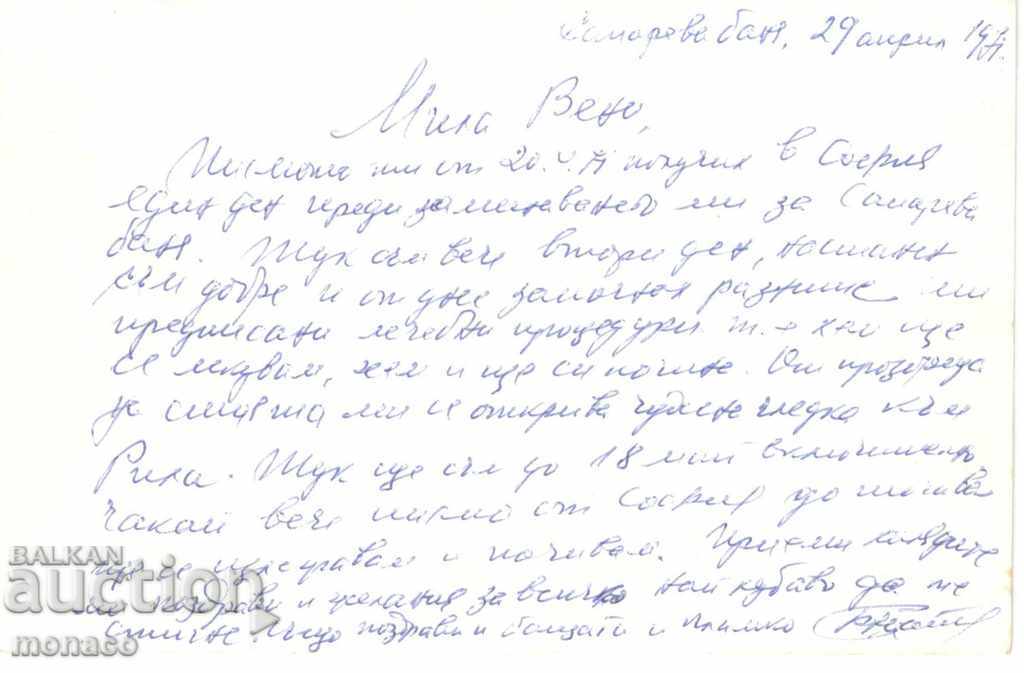 баня, 29 април 1971.
Мила Вено,
Писмото ти от 20.V.71 получих в София
един ден преди заминаването ми за Сапарева
баня. Тук съм вече втори ден, настанен
съм добре и от днес започнах разните ми
предписани лечебни процедури. Т.е хем ще
се лекувам, хем и ще си почина. От прозореца
на стаята ми се открива чудесна гледка към
Рила. Тук ще съм до 18 май включително
чакай вече писмо от София до тогава
ще се и почивам. Приеми
ми поздрави и желания за всичко най хубаво да те
поздрави бащата и
BALKAN
auction
monaco